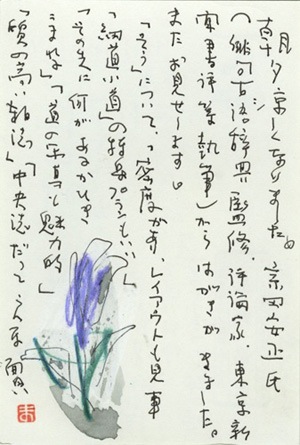 朝夕涼しくなりました。宗田安正氏
(俳句古語辞典監修、評論家、東京新
聞書評等執筆)からはがきがきました。
またお見せします。
「そう」について、「密度があり、レイアウトも見事
「細道小道」の特集プランもいい」
「その先に何があるかひき
こまれる」「道の写真も魅力的」
「質の高い雑誌」「中央誌だってこんな